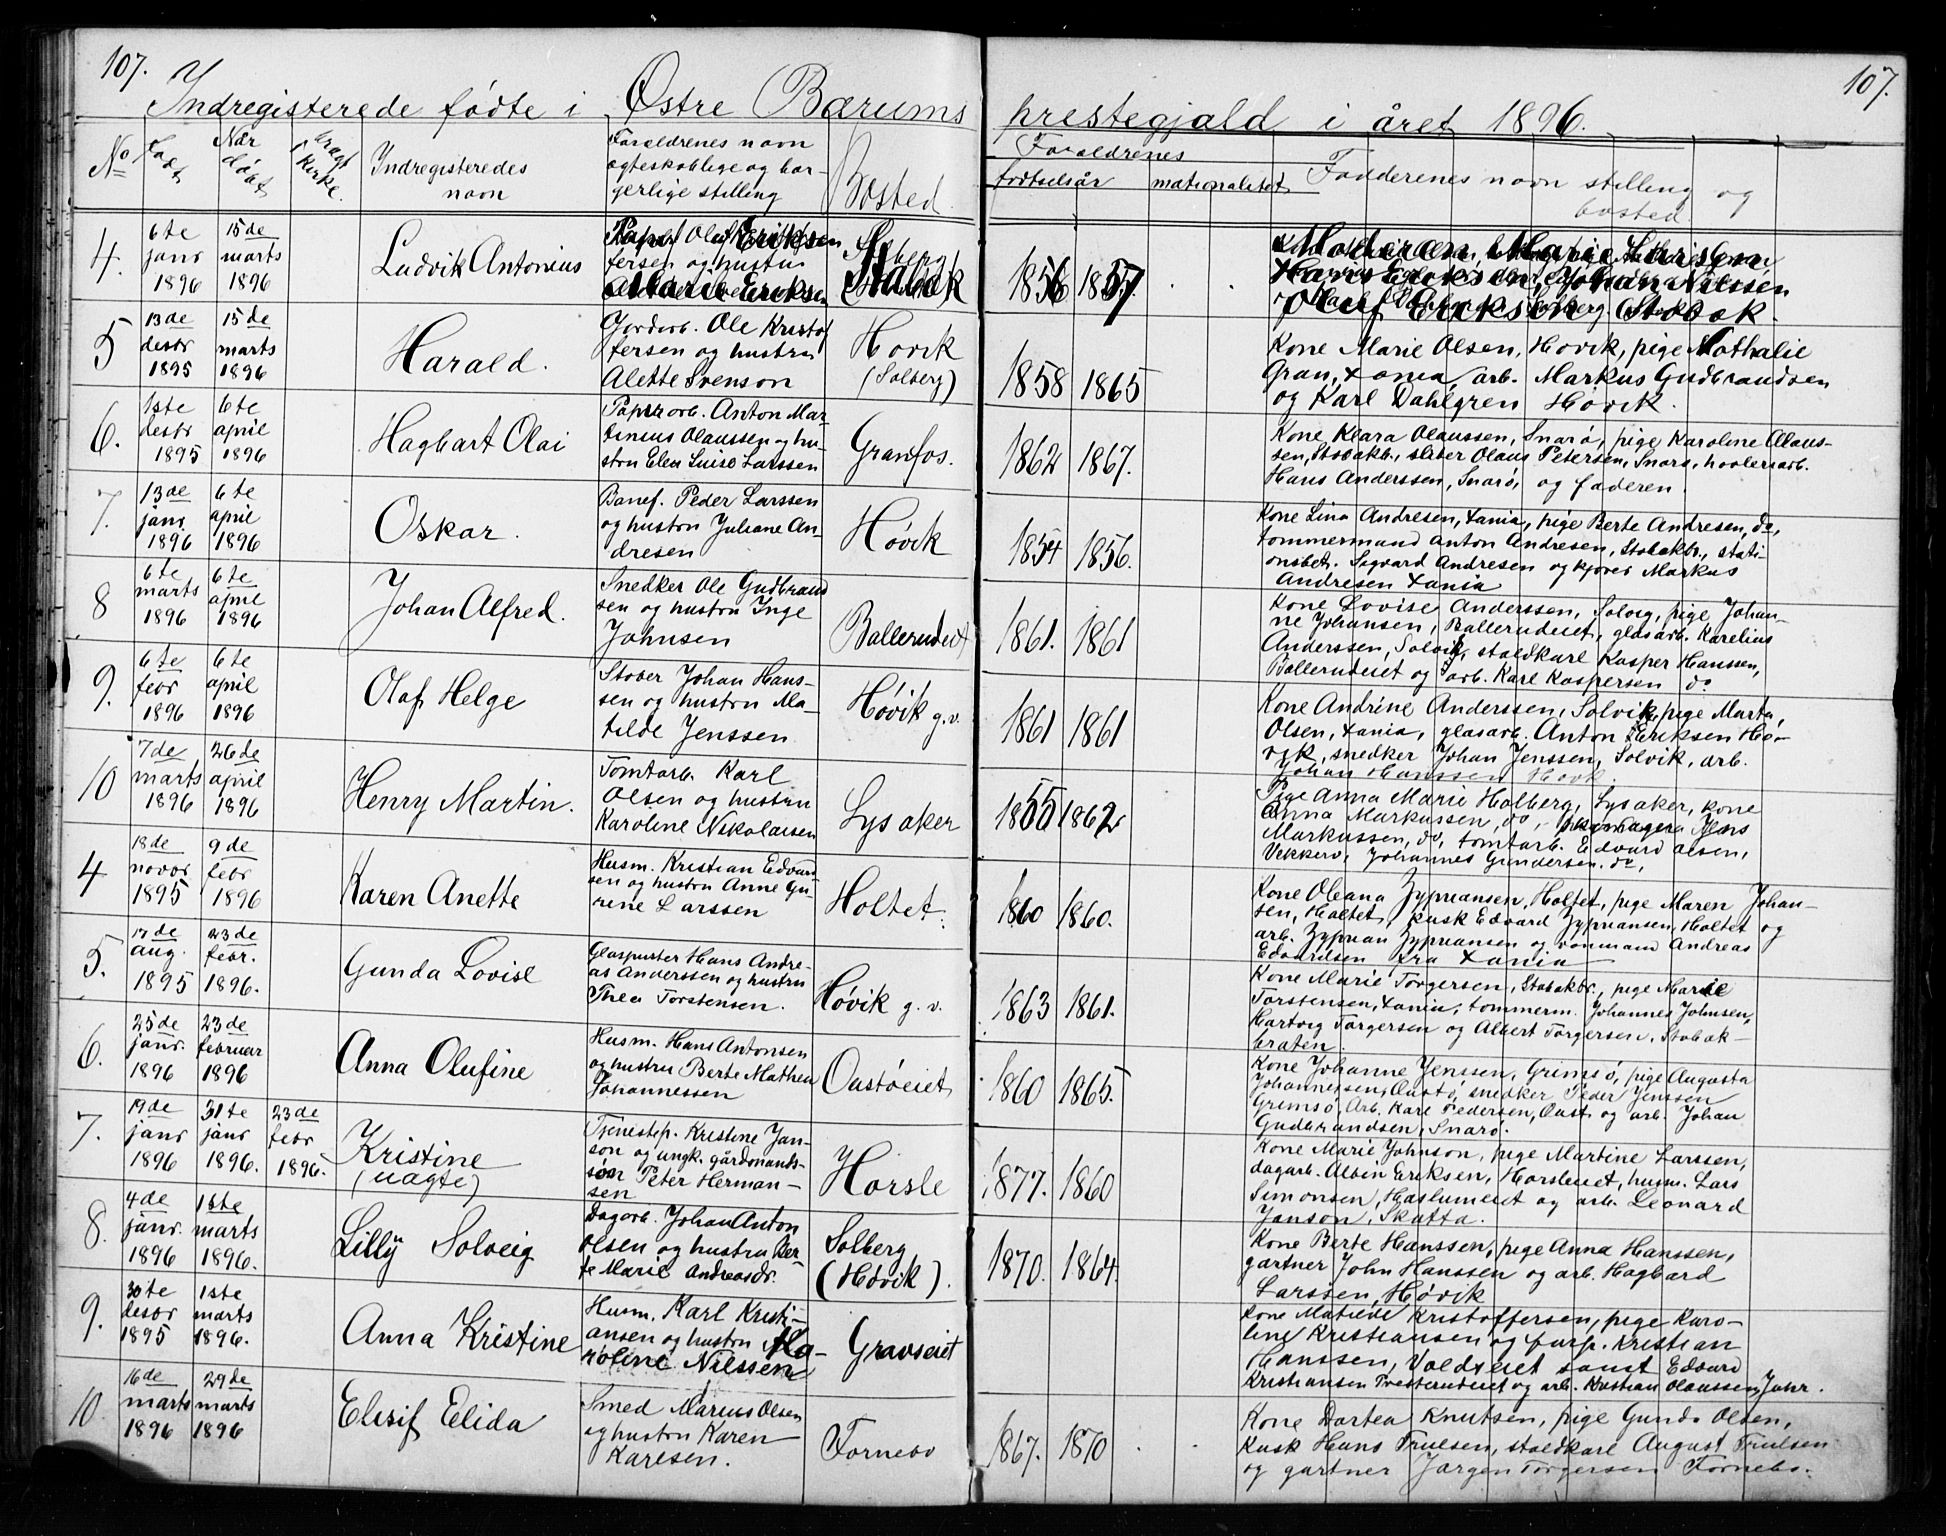 107.
107.
Indregisterede fødte i Østre Bærums prestegjæld i året 1896.
No
Født
Når døbt
bragt i kirke.
Indregisteredes navn
Forældrenes navn
ægteskablige og bor-
gerlige stilling
Bosted.
Forældrenes
fødselsår
nationalitet
Fadderenes navn stilling og
bosted.
4.
6te janr 1896
15de marts 1896
Ludvik Antonius
Olaf Eriksen
og hustru
Marie Eriksen
Stabæk
1856
1857
Moderen, Marie Larsen
Hans Eriksen, Johan Nilssen
Oluf Eriksen Stabæk.
5
13de desbr 1895
15de marts 1896
Harald.
Gordarb. Ole Kristof
fersen og hustru
Alette Svenson
Høvik
(Solberg)
1858
1865
Kone Marie Olsen, Høvik, pige Nathalie
Gran, Xania, arb. Markus Gudbrandsen
og Karl Dahlgren Høvik.
6.
1ste desbr 1895
6te april 1896
Hagbart Olai
Papirarb. Anton Mar-
tinius Olaussen og hu-
stru Elen Luise Larssen
Granfos.
1862
1867.
Kone Klara Olaussen, Snarø, pige Karoline Olaus-
sen, Stabækb., sliber Olaus Petersen, Snarø, høvleriarb.
Hans Anderssen, Snarø, og faderen.
7.
13de janr 1896
6te april 1896
Oskar.
Banef. Peder Larssen
og hustru Juliane An-
dresen
Høvik
1854
1856.
Kone Lina Andresen, Xania, pige Berte Andresen, do,
tømmermand Anton Andresen, Stabækbr., stati-
onsbet. Sigvard Andresen og kjører Markus
Andresen Xania
8
6te marts 1896
6te april 1896
Johan Alfred.
Snedker Ole Gudbrand
sen og hustru Inge
Johnsen
Ballerudeiet
1861.
1861
Kone Lovise Anderssen, Solvig, pige Johan-
ne Johansen, Ballerudeiet, glasarb. Karelius
Anderssen, Solvik, staldkarl Kasper Hanssen,
Ballerudeiet og arb. Karl Kaspersen do
9.
6te febr 1896
6te april 1896
Olaf Helge
Støber Johan Hans-
sen og hustru Ma-
tilde Jenssen
Høvik g.v.
1861
1861
Kone Andrine Anderssen, Solvik, pige Marta,
Olsen, Xania, glasarb. Anton Eriksen Hø-
vik, snedker Johan Jenssen, Solvik, arb.
Johan Hanssen Høvik.
10
7de marts 1896
26de april 1896
Henry Martin.
Tomtarb. Karl
Olsen og hustru
Karoline Nikolaisen
Lysaker
1855
1862
Pige Anna Marie Holberg, Lysaker, kone
Anna Markussen, do, Jens
Markussen, do, tomtarb. Edvard Olsen,
Vekkerø, Johannes Gundersen. do,
4
18de novbr 1895
9de febr 1896
Karen Anette
Husm. Kristian Edvard
sen og hustru Anne Gu-
rine Larssen
Holtet.
1860
1860.
Kone Oleana Zypriansen, Holtet, pige Maren Johan-
sen, Holtet, kusk Edvard Zypriansen, Holtet og
arb. Zyprian Zypriansen og vonmand Andreas
Edvardsen fra Xania
5.
17de aug. 1895
23de febr. 1896.
Gunda Lovise
Glaspuster Hans Andre-
as Anderssen og hustru
Thea Torstensen.
Høvik g. v.
1863
1861.
Kone Marie Torgersen, Stabækbr., pige Marie
Torstensen, Xania, tømmerm. Johannes Johnsen,
Hartvig Torgersen og Albert Torgersen, Stabæk-
bråten.
6.
25de janr. 1896
23de februar 1896
Anna Olufine
Husm. Hans Antonsen
og hustru Berte Mathea
Johannessen
Oustøeiet
1860
1865.
Kone Johanne Jenssen, Grimsø, pige Augusta
Johannessen, Oustø, snedker Peder Jenssen
Grimsø, Arb. Karl Pedersen, Oust. og arb. Johan
Gudbrandsen, Snarø.
7.
19de janr 1896
31te janr 1896.
23de febr 1896.
Kristine
(uægte)
Tjenestep. Kristine Jan-
son og ungk. gårdmands-
søn Peter Herman-
sen
Horsle
1877.
1860
Kone Marie Johnson, pige Martine Larssen,
dagarb. Albin Eriksen, Horsleiet, husm. Lars
Simonsen, Haslumeiet og arb. Leonard
Janson, Skatta.
8.
4de janr. 1896
1ste marts 1896.
Lilly Solveig
Dagarb. Johan Anton
Olsen og hustru Ber-
te Marie Andreasdr.
Solberg
(Høvik).
1870.
1864.
Kone Berte Hanssen, pige Anna Hanssen,
gartner John Hanssen og arb. Hagbard
Larssen, Høvik
9.
30te desbr 1895
1ste marts 1896.
Anna Kristine
Husm. Karl Kristi-
ansen og hustru Ka-
roline Nilssen
Gravseiet
Kone Matilde Kristoffersen, pige Karo-
line Kristiansen og furp. Kristian
Hanssen, Voldseiet samt Edvard
Kristiansen Presterudeiet og arb. Kristian Olaussen, Jahr.
10
16de marts 1896
29de marts 1896
Elisif Elida
Smed Marius Olsen
og hustru Karen
Karlsen.
Fornebo
1867.
1870
Kone Dortea Knutsen, pige Gunda Olsen,
Kusk Hans Trulsen, staldkarl August Trulsen
og gartner Jørgen Torgersen Fornebo.